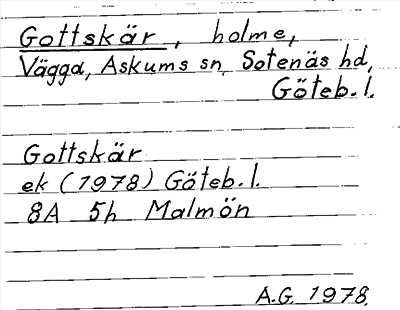 Gottskär, holme,
Vägga, Askums sn, Sotenäs hd,
Göteb.l.
Gottskär
ek (1978) Göteb.l.
8A 5h Malmön
A.G. 1978.